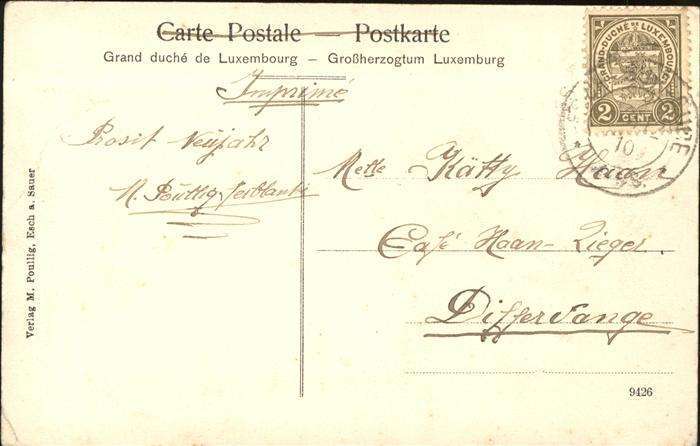 Carte Postale — Postkarte
Grand duché de Luxembourg – Großherzogtum Luxemburg
Imprimé
GRAND-DUCHÉ DE LUXEMBOURG
2 CENT. 2
10
Prosit Neujahr
M. Poullig-
Melle Kätty Haan
Café Haan-Zieger
Differdange
Verlag M. Poullig, Esch a. Sauer
9426